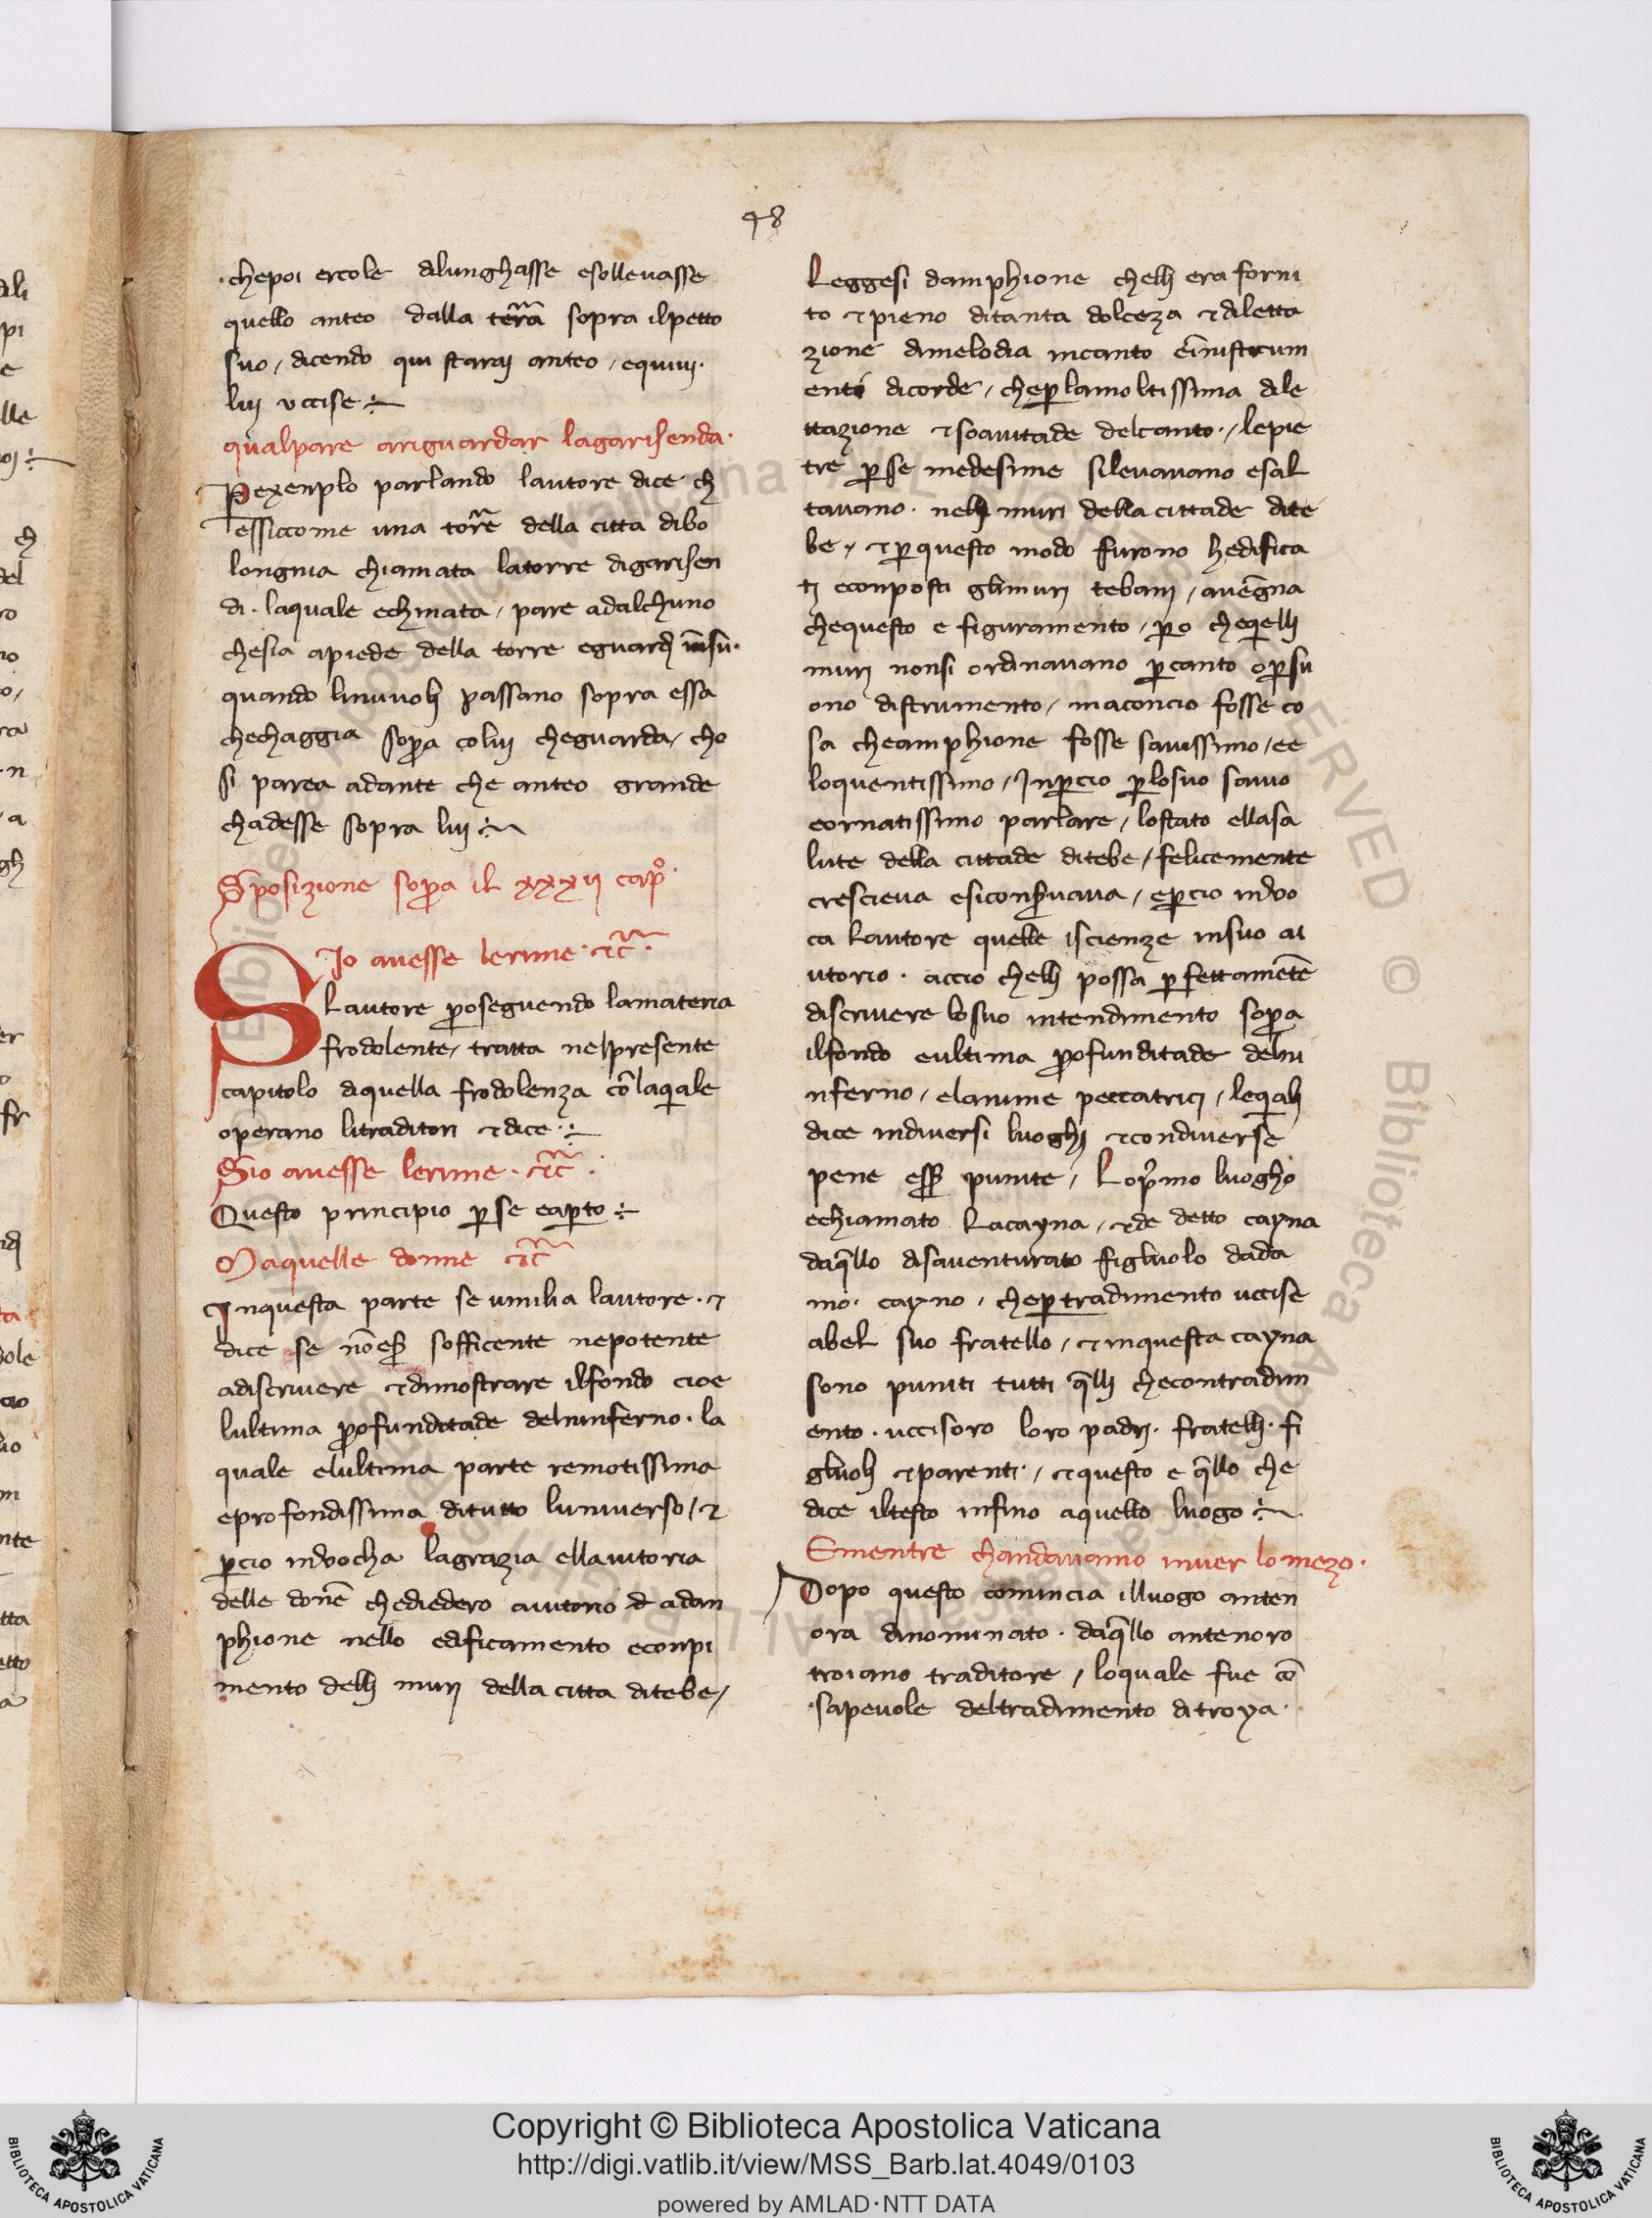 48
chepoi ercole alunghasse esollevasse
quello anteo dalla terra sopra ilpetto
suo / dicendo qui starai anteo / equivi
luj uccise
qualpare ariguardar lagarisenda
Pexenplo parlando lautore dice ch
essiccome una torre della citta dibo
longnia chiamata latorre digarisen
di · laquale echinata / pare adalchuno
chesia apiede della torre eguardj insu
quando linuvolj passano sopra essa
chechaggia sopra coluj cheguarda / cho
si parea adante che anteo grande
chadesse sopra luj
Sposizione sopra il xxxij capo
S Io avesse lerime · etc
Lautore proseguendo lamateria
frodolente / tratta nelpresente
capitolo diquella frodolenza colaquale
operano litraditori et dice
Sio avesse lerime · etc
Questo principio per se eaperto
Maquelle donne etc
Inquesta parte se umilia lautore · et
dice se no esser sofficente nepotente
adiscrivere et dimostrare ilfondo cioe
lultima profunditade delninferno · la
quale elultima parte remotissima
eprofondissima ditutto luniverso / et
percio invocha lagrazia ellaiutoria
delle donne chediedero aiutorio ad adan
phione nello edificamento econpi
mento dellj murj della citta ditebe /
Leggesi damphione chellj era forni
to et pieno ditanta dolceza et diletta
zione dimelodia incanto einistrum
enti dicorde / cheperlamoltissima dile
ttazione et soavitade delcanto · / lepie
tre perse medesime silevavano esal
tavano · nellj murj della cittade dite
be / et perquesto modo furono hedifica
tj econposti glimurj tebanj / avengna
chequesto e figuramento / pero chequellj
murj nonsi ordinavano percanto opersu
ono distrumento / maconcio fosse co
sa cheamphione fosse savissimo / ee
loquentissimo / Inpercio perlosuo savio
eornatissimo parlare / lostato ellasa
lute della cittade ditebe / felicemente
crescieva esiconservava / epercio invo
ca Lautore quelle iscienze insuo ai
utorio · accio chellj possa perfettamente
discrivere losuo intendimento sopra
ilfondo eultima profunditade delni
nferno / elanime peccatricj / lequalj
dice indiversi luoghj et condiverse
pene esser punite / Loprimo luogho
echiamato Lacayna / et de detto cayna
daquello disaventurato figliuolo dada
mo · cayno / chepertradimento uccise
abel suo fratello / et inquesta cayna
sono puniti tutti quellj checontradim
ento · uccisoro loro padrj · fratellj · fi
gliuolj et parenti · / et questo e quello che
dice iltesto insino aquello luogo
Ementre chandavamo inver lo mezo ·
Dopo questo comincia illuogo anten
ora dinominato · daquello antenoro
troiano traditore / loquale fue con
sapevole deltradimento ditroya ·
Copyright © Biblioteca Apostolica Vaticana
http://digi.vatlib.it/view/MSS_Barb.lat.4049/0103
powered by AMLAD·NTT DATA
BIBLIOTECA APOSTOLICA VATICANA
BIBLIOTECA APOSTOLICA VATICANA